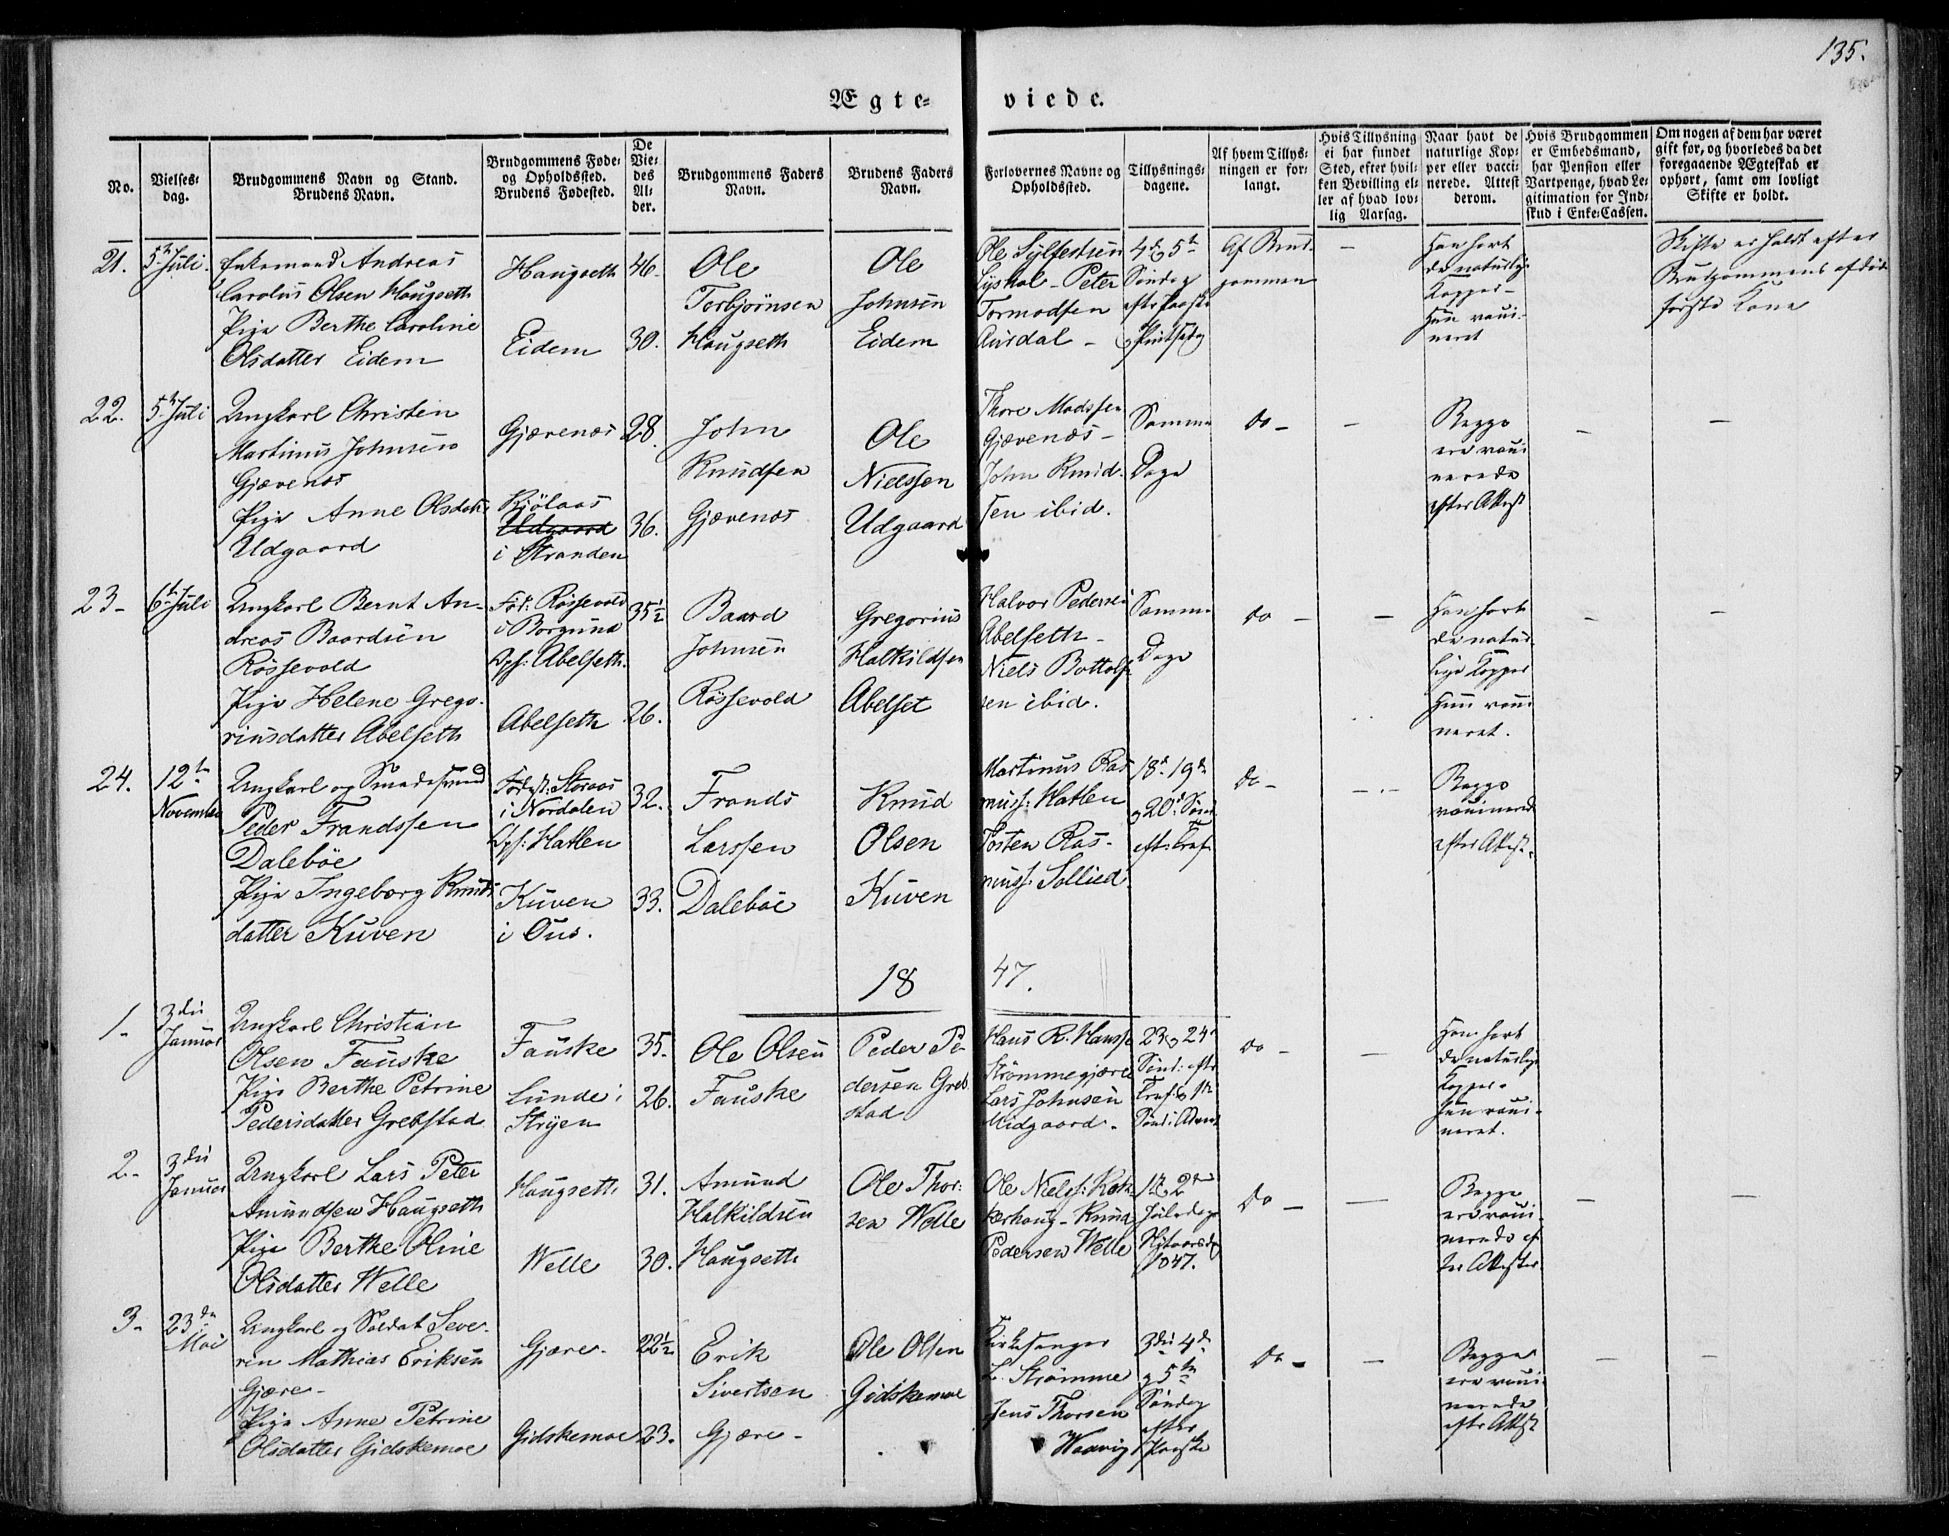 135.
Ægte- viede.
No.
Vielses-
dag.
Brudgommens Navn og Stand.
Brudens Navn.
Brudgommens Føde-
og Opholdssted.
Brudens Fødested.
De
Vie-
des
Al-
der.
Brudgommens Faders
Navn.
Brudens Faders
Navn.
Forlovernes Navne og
Opholdssted.
Tillysnings-
dagene.
Af hvem Tillys-
ningen er for-
langt.
Hvis Tillysning
ei har fundet
Sted, efter hvil-
ken Bevilling el-
ler af hvad lov-
lig Aarsag.
Naar havt de
naturlige Kop-
per eller vacci-
nerede. Attest
derom.
Hvis Brudgommen
er Embedsmand,
har Pension eller
Vartpenge, hvad Le-
gitimation for Ind-
skud i Enke-Cassen.
Om nogen af dem har været
gift før, og hvorledes da det
foregaaende Ægteskab er
ophørt, samt om lovligt
Skifte er holdt.
21.
5te Juli.
Enkemand Andreas
Carolus Olsen Haugseth
Pige Berthe Caroline
Olsdatter Eidem
Haugseth
Eidem
46.
30.
Ole
Torbjørnsen
Haugseth
Ole
Johnsen
Eidem
Ole Sylfestsen
Lyshol - Peter
Tormodsen
Aursdal -
4de 5te
Søndag
efter Paaske
Af Brud-
gommen
-
Han havt
de naturlige
Kopper -
Hun vacci-
neret
Skifte er holdt efter
Brudgommens afdøde
første Kone
22.
5te Juli
Ungkarl Christen
Martinus Johnsen
Gjævenæs
Pige Anne Olsdatter
Udgaard
Gjævenæs
Kjölaas
Udgaard
i Stranden
28.
36.
John
Knudsen
Gjævenæs
Ole
Nielssen
Udgaard
Thore Madssen
Gjævenæs -
John Knud-
sen ibid.
Samme
Dage
do -
-
Begge
ere vacci
nerede
efter Attest
-
-
23 -
6te Juli
Ungkarl Bernt An-
dreas Baardsen
Røssevold
Pige Helene Grego-
riusdatter Abelseth
Fød: Røssevold
i Borgund
Opf: Abelseth.
Abelseth
35½
26.
Baard
Johnsen
Røssevold
Gregorius
Halkildsen
Abelset
Halvor Pedersen
Abelseth -
Niels Bottolf-
sen ibid.
Samme
Dage
do -
-
Han havt
de natur-
lige Kopper
Hun vacci
neret.
-
-
24.
12te
November
Ungkarl og Smedesvend
Peder Frandssen
Dalebøe
Pige Ingeborg Knuds
datter Kuven
Fødest: Storaas
i Nordalen
Opf: Hatlen
Kuven
i Ous.
32.
33.
Frands
Larssen
Dalebøe
Knud
Olsen
Kuven
Martinus Ras
muss: Hatlen
Tosten Ras-
muss: Sollied
18de 19de
og 20de Sønd
eft: Tref
do -
- . -
Begge
vaccinerede
efter Attest.
1847.
1 -
3die
Januar
Ungkarl Christian
Olsen Fauske
Pige Berthe Petrine
Pedersdatter Grebstad
Fauske
Lunde i
Stryen
35.
26.
Ole Olsen
Fauske
Peder Pe-
dersen Greb
stad
Hans R. Hansse
Strømmegjære
Lars Johnsen
Midgaard -
23 og 24de
Sønd: efter
Tref: og 1ste
Sønd: i Advent
do -
-
Han havt
de naturlige
Kopper -
Hun vacci-
neret.
2 -
3die
Januar
Ungkarl Lars Peter
Amundsen Haugseth
Pige Berthe Oline
Olsdatter Welle
Haugseth
Welle
31.
30.
Amund
Halkildsen
Haugseth
Ole Thor-
sen Welle
Ole Nielss:
- Knud
Pedersen Welle
1ste 2den
Juledag
Nytaarsdag
1847.
do -
-
Begge
ere vacci-
nerede ef
ter Attester
-
-
3 -
23de
Mai
Ungkarl og Soldat Seve-
rin Mathias Eriksen
Gjære -
Pige Anne Petrine
Olsdatter Gidskemoe
Gjære -
Gidskemoe
22½
23.
Erik
Sivertsen
Gjære -
Ole Olsen
Gidskemoe
Kirkesanger
L. Strømme
Jens Thorsen
Waavig
3die 4de
og 5te
Søndag
efter
Paaske
do -
-
Begge
ere vacci-
nerede
efter Attest
-
-